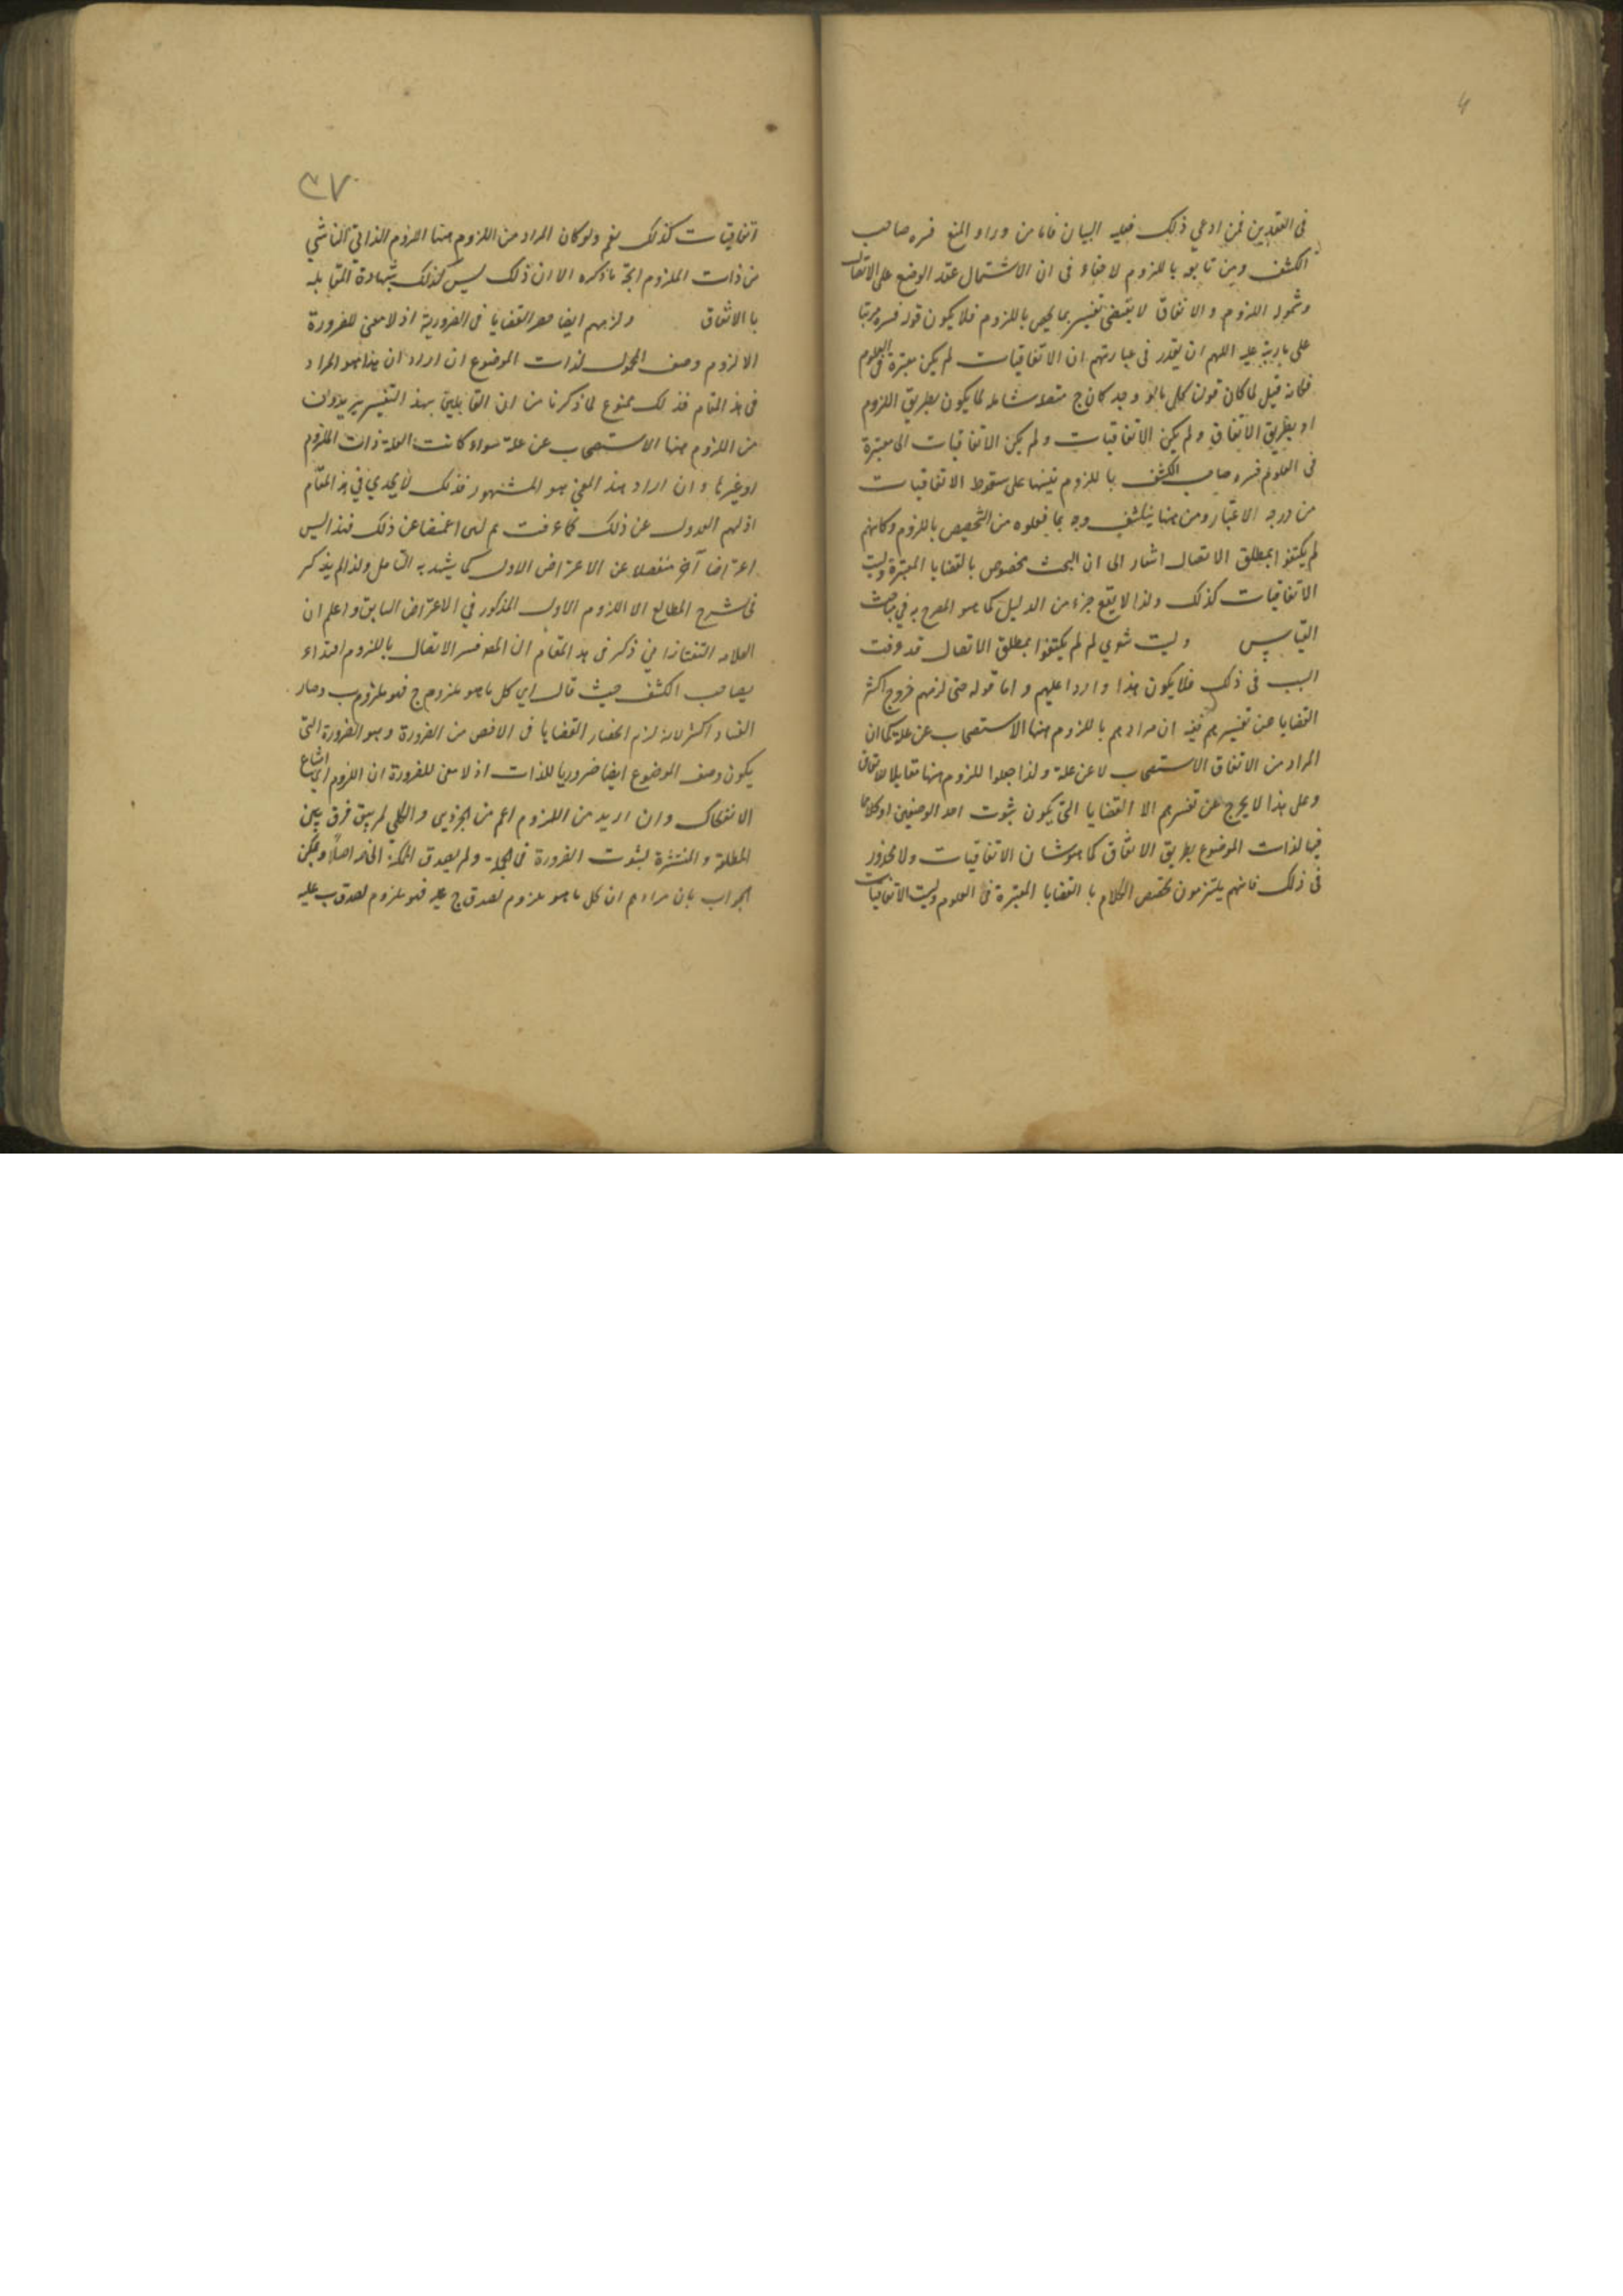 في العقدين فمن ادعي ذلك فعليه البيان فانا من وراء المنع فسره صاحب
الكشف ومن تابعه باللزوم لاخفاء في ان الاشتمال عقد الوضع على الاتصال
وشمول اللزوم والاتفاق لا يقتضي تفسيره بما يخص باللزوم فلا يكون قوله فسره مرتبا
على اللهم ان يقدر في عبارتهم ان الاتفاقيات لم يكن معتبرة في العلوم
فكانه قيل لما كان قولنا كلما لو وجد كان ج متصلا شاملا لما يكون بطريق اللزوم
او بطريق الاتفاق ولم يكن الاتفاقيات ولم يكن الاتفاقيات معتبرة
في العلوم فسره صاحب الكشف باللزوم تنبيها على سقوط الاتفاقيات
من درجه الاعتبار ومن هنا ينكشف وجه ما فعلوه من التخصيص باللزوم وكانهم
لم يكتفوا بمطلق الاتصال اشار الى ان البحث مخصوص بالقضايا المعتبرة وليست
الاتفاقيات كذلك ولذا لا يقع جزء من الدليل كما هو المصرح به في مباحث
القياس وليت شعري لم لم يكتفوا بمطلق الاتصال قد عرفت
السبب في ذلك فلا يكون هذا واردا عليهم واما قوله حتى لزمهم خروج اكثر
القضايا عن تفسيرهم ففيه ان مرادهم باللزوم هنا الاستصحاب عن علة كما ان
المراد من الاتفاق الاستصحاب لا عن علة ولذا جعلوا اللزوم هنا مقابلا للاتفاق
وعلى هذا لا يخرج عن تفسيرهم الا القضايا التي يكون ثبوت احد الوصفين او كلاهما
فيها لذات الموضوع بطريق الاتفاق كما هو شان الاتفاقيات ولا محذور
في ذلك فانهم يلتزمون تخصيص الكلام با القضايا المعتبرة في العلوم وليست الاتفاقيات
٣٧
اتفاقيات كذلك نعم ولو كان المراد من اللزوم هنا اللزوم الذاتي الناشي
من ذات الملزوم اتجه ما ذكره الا ان ذلك ليس كذلك بشهادة المقابله
با الاتفاق ولزمهم ايضا حصر القضايا في الضرورية اذ لا معنى للضرورة
الا لزوم وصف المحمول لذات الموضوع ان اراد ان هذا هو المراد
في هذا المقام فذلك ممنوع لما ذكرنا من ان القايلين بهذ التفسير يريدون
من اللزوم هنا الاستصحاب عن علة سواء كانت العلة ذات الملزوم
او غيرها وان اراد هذ المعنى هو المشهور فذلك لا يجدي في هذ المقام
اذ لهم العدول عن ذلك كما عرفت ثم لئن اغمضنا عن ذلك فهذا ليس
اعتراضا آخر منفصلا عن الاعتراض الاول كما يشهد به التامل ولذا لم يذكر
في شرح المطالع الا اللزوم الاول المذكور في الاعتراض السابق واعلم ان
العلامه التفتازاني ذكر في هذ المقام ان المص فسر الاتصال باللزوم اقتداء
بصاحب الكشف حيث قال اي كل ما هو ملزوم ج فهو ملزوم ب وصار
الفساد اكثر لانه لزم انحصار القضايا في الاخص من الضرورة وهو الضرورة التي
يكون وصف الموضوع ايضا ضروريا للذات اذ لا معنى للضرورة ان اللزوم اي امتناع
الانفكاك وان اريد من اللزوم اعم من الجزوي والكلي لم يبق فرق بين
المطلقة والمنتشرة لثبوت الضرورة في الجملة ولم يصدق الممكنة الخاصه اصلا ويمكن
الجواب بان مرادهم ان كل ما هو ملزوم لصدق ج عليه فهو ملزوم لصدق ب عليه